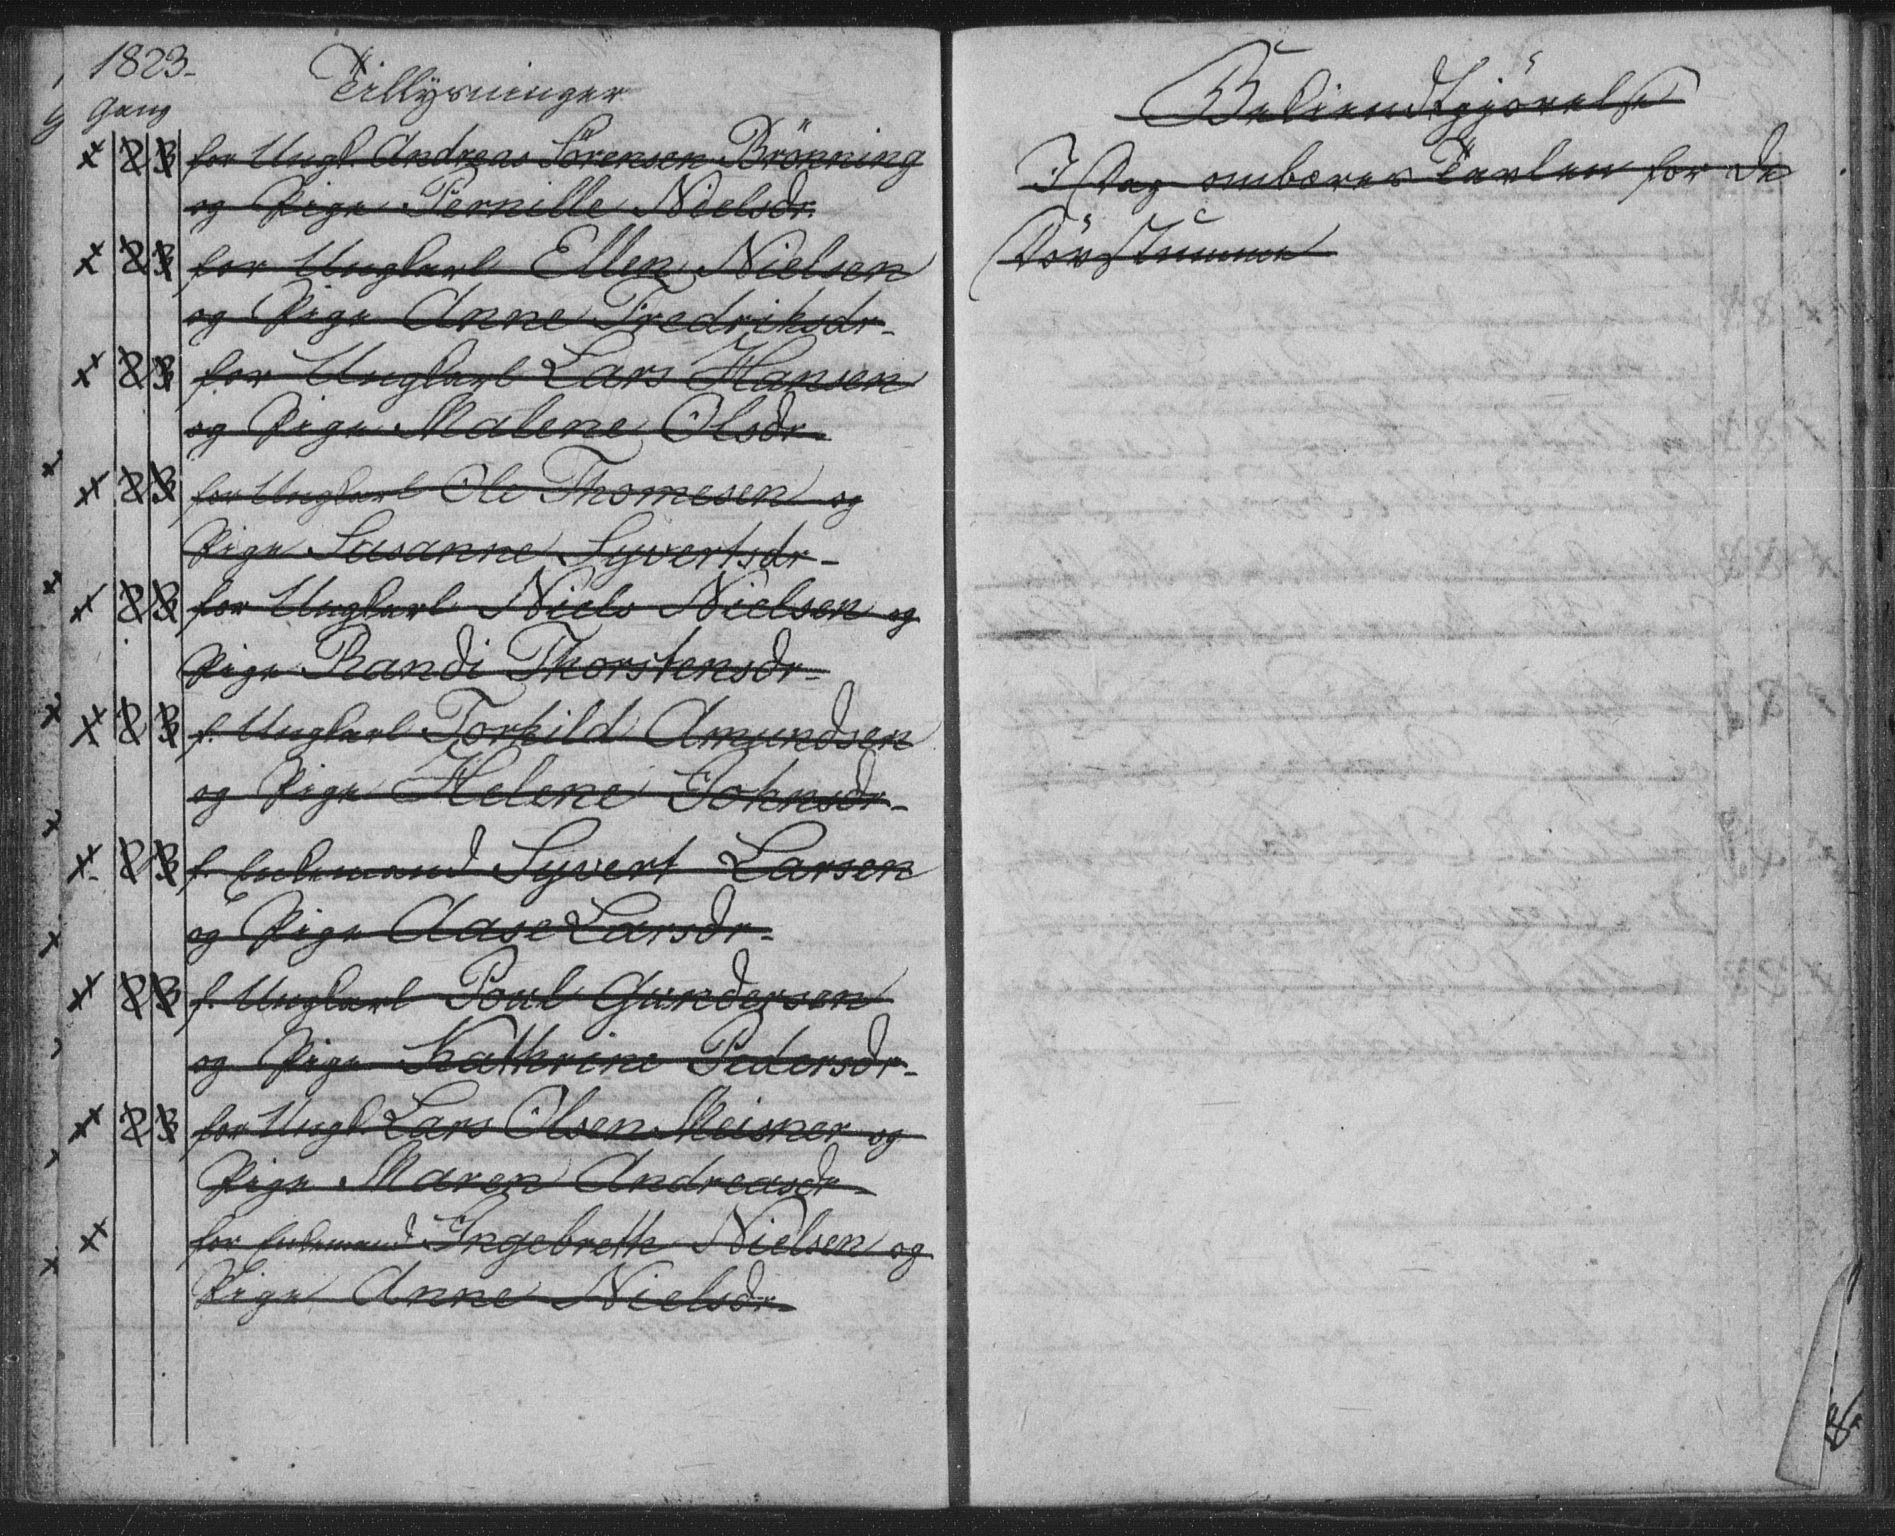 1823.
Gang
Tillysninger
x 2 3 for Ungk. Andreas Sörensen Brönning
og Pige Pernille Nielsdr.
x 2 3 for Ungkarl Ellen Nielsen
og Pige Anne Fredriksdr.
x 2 3 for Ungkarl Lars Hansen
og Pige Malene Olsdr.
x 2 3 for Ungkarl Ole Thomesen og
Pige Susanne Syvertsdr.
x 2 3 for Ungkarl Niels Nielsen og
Pige Randi Thorstensdr.
x 2 3 f. Ungkarl Torkild Amundsen
og Pige Helene Johnsdr.
x 2 3 f. Enkemand Syvert Larsen
og Pige Aase Larsdr.
x 2 3 f. Ungkarl Poul Gundersen
og Pige Kathrine Pedersdr.
x 2 3 for Ungk. Lars Olsen Meisner og
Pige Maren Andreasdr.
x for Enkemand Ingebreth Nielsen og
Pige Anne Nielsdr.
Bekiendtgjörelse
I Dag ombæres Tavlen for de
Dövstumme